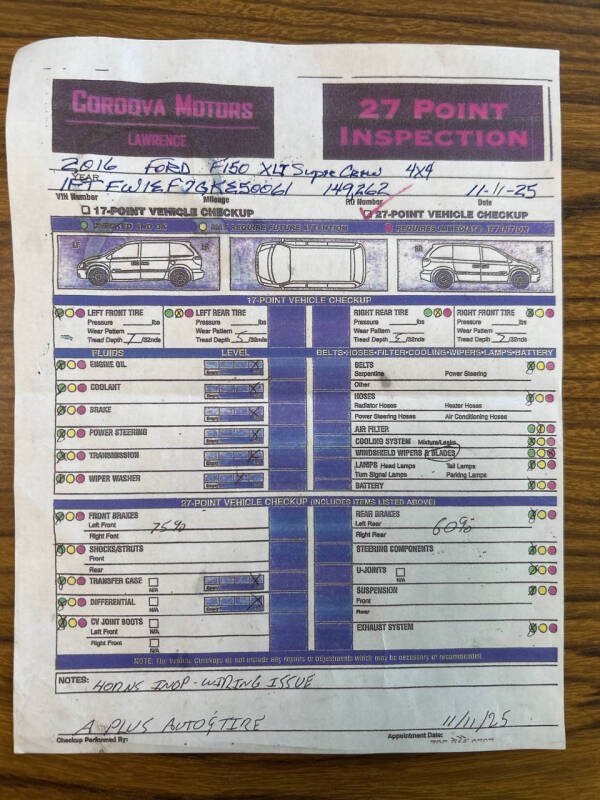 CORDOVA MOTORS
LAWRENCE
27 POINT
INSPECTION
2016 FORD F150 XLT Super Crew 4x4
YEAR
149262 11-11-25
VIN Number Mileage RO Number Date
17-POINT VEHICLE CHECKUP 27-POINT VEHICLE CHECKUP
CHECKED AND OK MAY REQUIRE FUTURE ATTENTION REQUIRES IMMEDIATE ATTENTION
LF RF
17-POINT VEHICLE CHECKUP
LEFT FRONT TIRE LEFT REAR TIRE RIGHT REAR TIRE RIGHT FRONT TIRE
Pressure lbs Pressure lbs Pressure lbs Pressure lbs
Wear Pattern Wear Pattern Wear Pattern Wear Pattern
Tread Depth 7 /32nds Tread Depth 5 /32nds Tread Depth /32nds Tread Depth /32nds
FLUIDS LEVEL BELTS•HOSES•FILTER•COOLING•WIPERS•LAMPS•BATTERY
ENGINE OIL BELTS
Serpentine Power Steering
Other
COOLANT HOSES
Radiator Hoses Heater Hoses
BRAKE Power Steering Hoses Air Conditioning Hoses
AIR FILTER
POWER STEERING COOLING SYSTEM Mixture/Leaks
TRANSMISSION WINDSHIELD WIPERS & BLADES
LAMPS Head Lamps Tail Lamps
WIPER WASHER Turn Signal Lamps Parking Lamps
BATTERY
27-POINT VEHICLE CHECKUP (INCLUDES ITEMS LISTED ABOVE)
FRONT BRAKES REAR BRAKES
Left Front 75% Left Rear 60%
Right Font Right Rear
SHOCKS/STRUTS STEERING COMPONENTS
Front
Rear U-JOINTS N/A
TRANSFER CASE N/A SUSPENSION
Front
DIFFERENTIAL N/A Rear
CV JOINT BOOTS N/A EXHAUST SYSTEM
Left Front
Right Front N/A
NOTE: The Vehicle Checkups do not include any repairs or adjustments which may be necessary or recommended.
NOTES: HORNS INOP - WIRING ISSUE
A PLUS AUTO & TIRE 11/11/25
Checkup Performed By: Appointment Date: